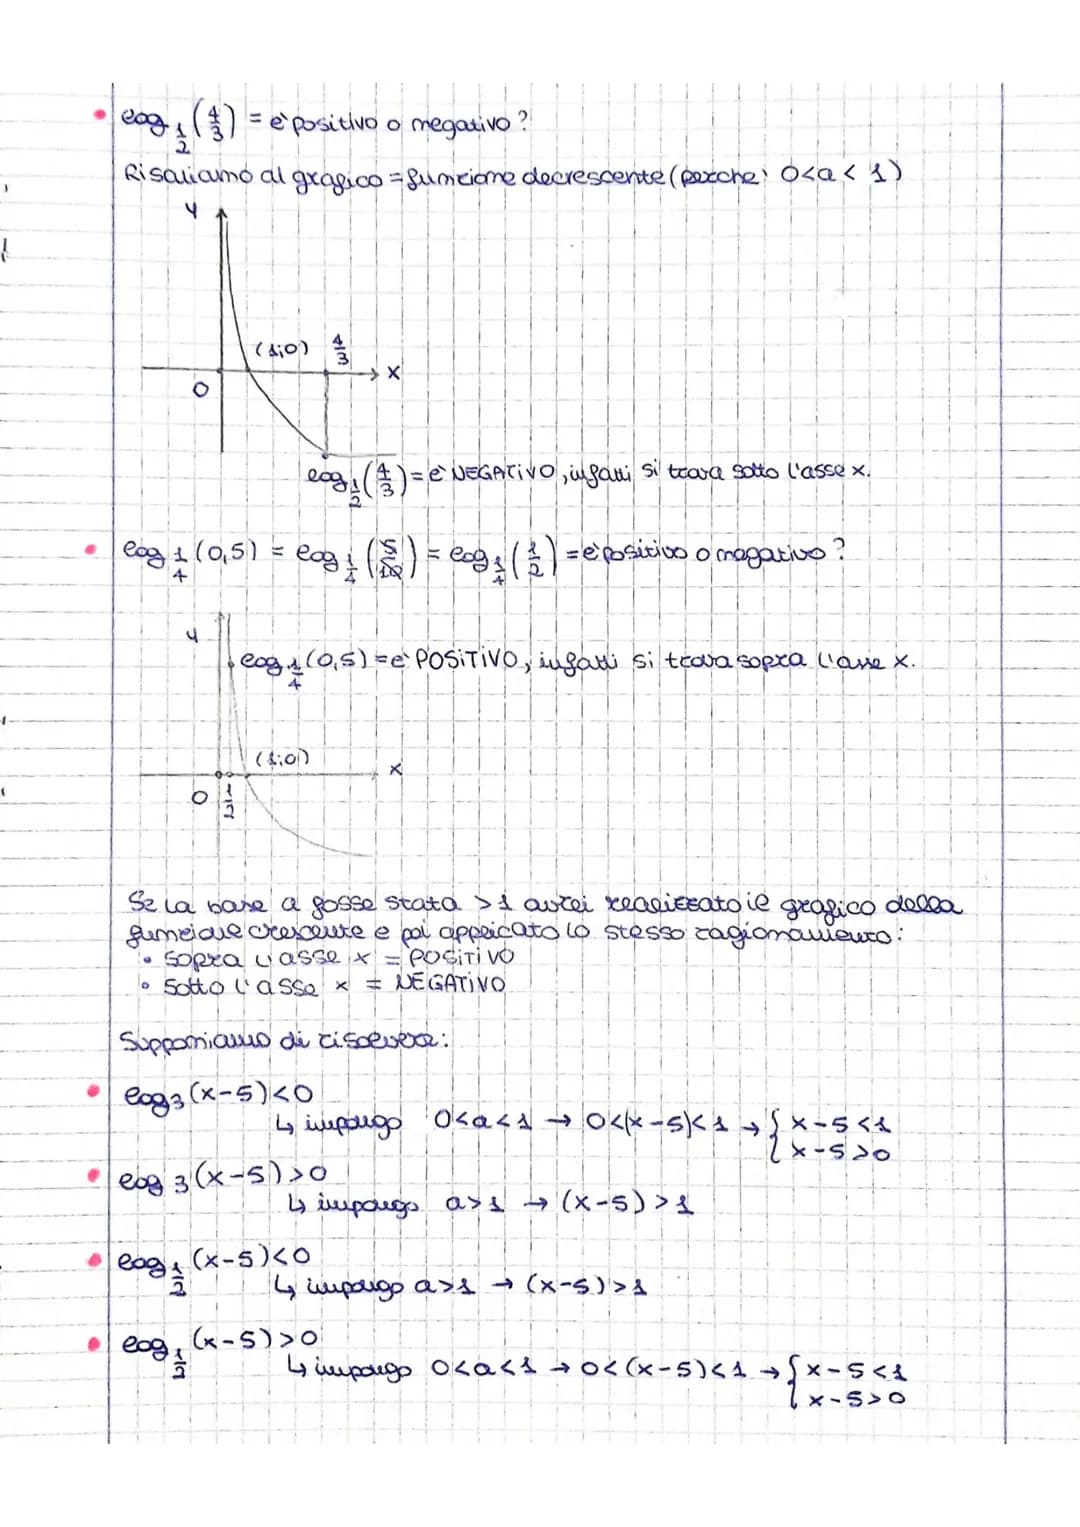 • log 1/2 (4/3) = è positivo o negativo?
Risaliamo al grafico = funzione decrescente (perche' 0<a<1)
y
(1;0) 4/3
x
0
log 1/2 (4/3) = è NEGATIVO, infatti si trova sotto l'asse x.
• log 1/4 (0,5) = log 1/4 (5/10) = log 1/4 (1/2) = è positivo o negativo?
y
log 1/4 (0,5) = è POSITIVO, infatti si trova sopra l'asse x.
(1;0)
x
0 1/2
Se la base a fosse stata >1 avrei realizzato il grafico della
funzione crescente e poi applicato lo stesso ragionamento:
• sopra l'asse x = POSITIVO
• Sotto l'asse x = NEGATIVO
Supponiamo di risolvere:
• log3 (x-5)<0
↳ impongo 0<a<1 → 0<(x-5)<1 → { x-5<1
x-5>0
• log 3 (x-5)>0
↳ impongo a>1 → (x-5)>1
• log 1/2 (x-5)<0
↳ impongo a>1 → (x-5)>1
• log 1/2 (x-5)>0
↳ impongo 0<a<1 → 0<(x-5)<1 → { x-5<1
x-5>0